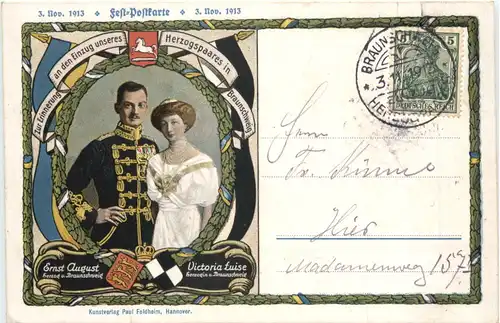 3. Nov. 1913 Fest-Postkarte 3. Nov. 1913
Zur Erinnerung an den Einzug unseres Herzogspaares in Braunschweig
Ernst August
Herzog v. Braunschweig
Victoria Luise
Herzogin v. Braunschweig
Kunstverlag Paul Feldheim, Hannover.
BRAUNSCHW
3.
5
DEUTSCHES REICH
Herrn
Fr.
Hier
Madamenweg 157